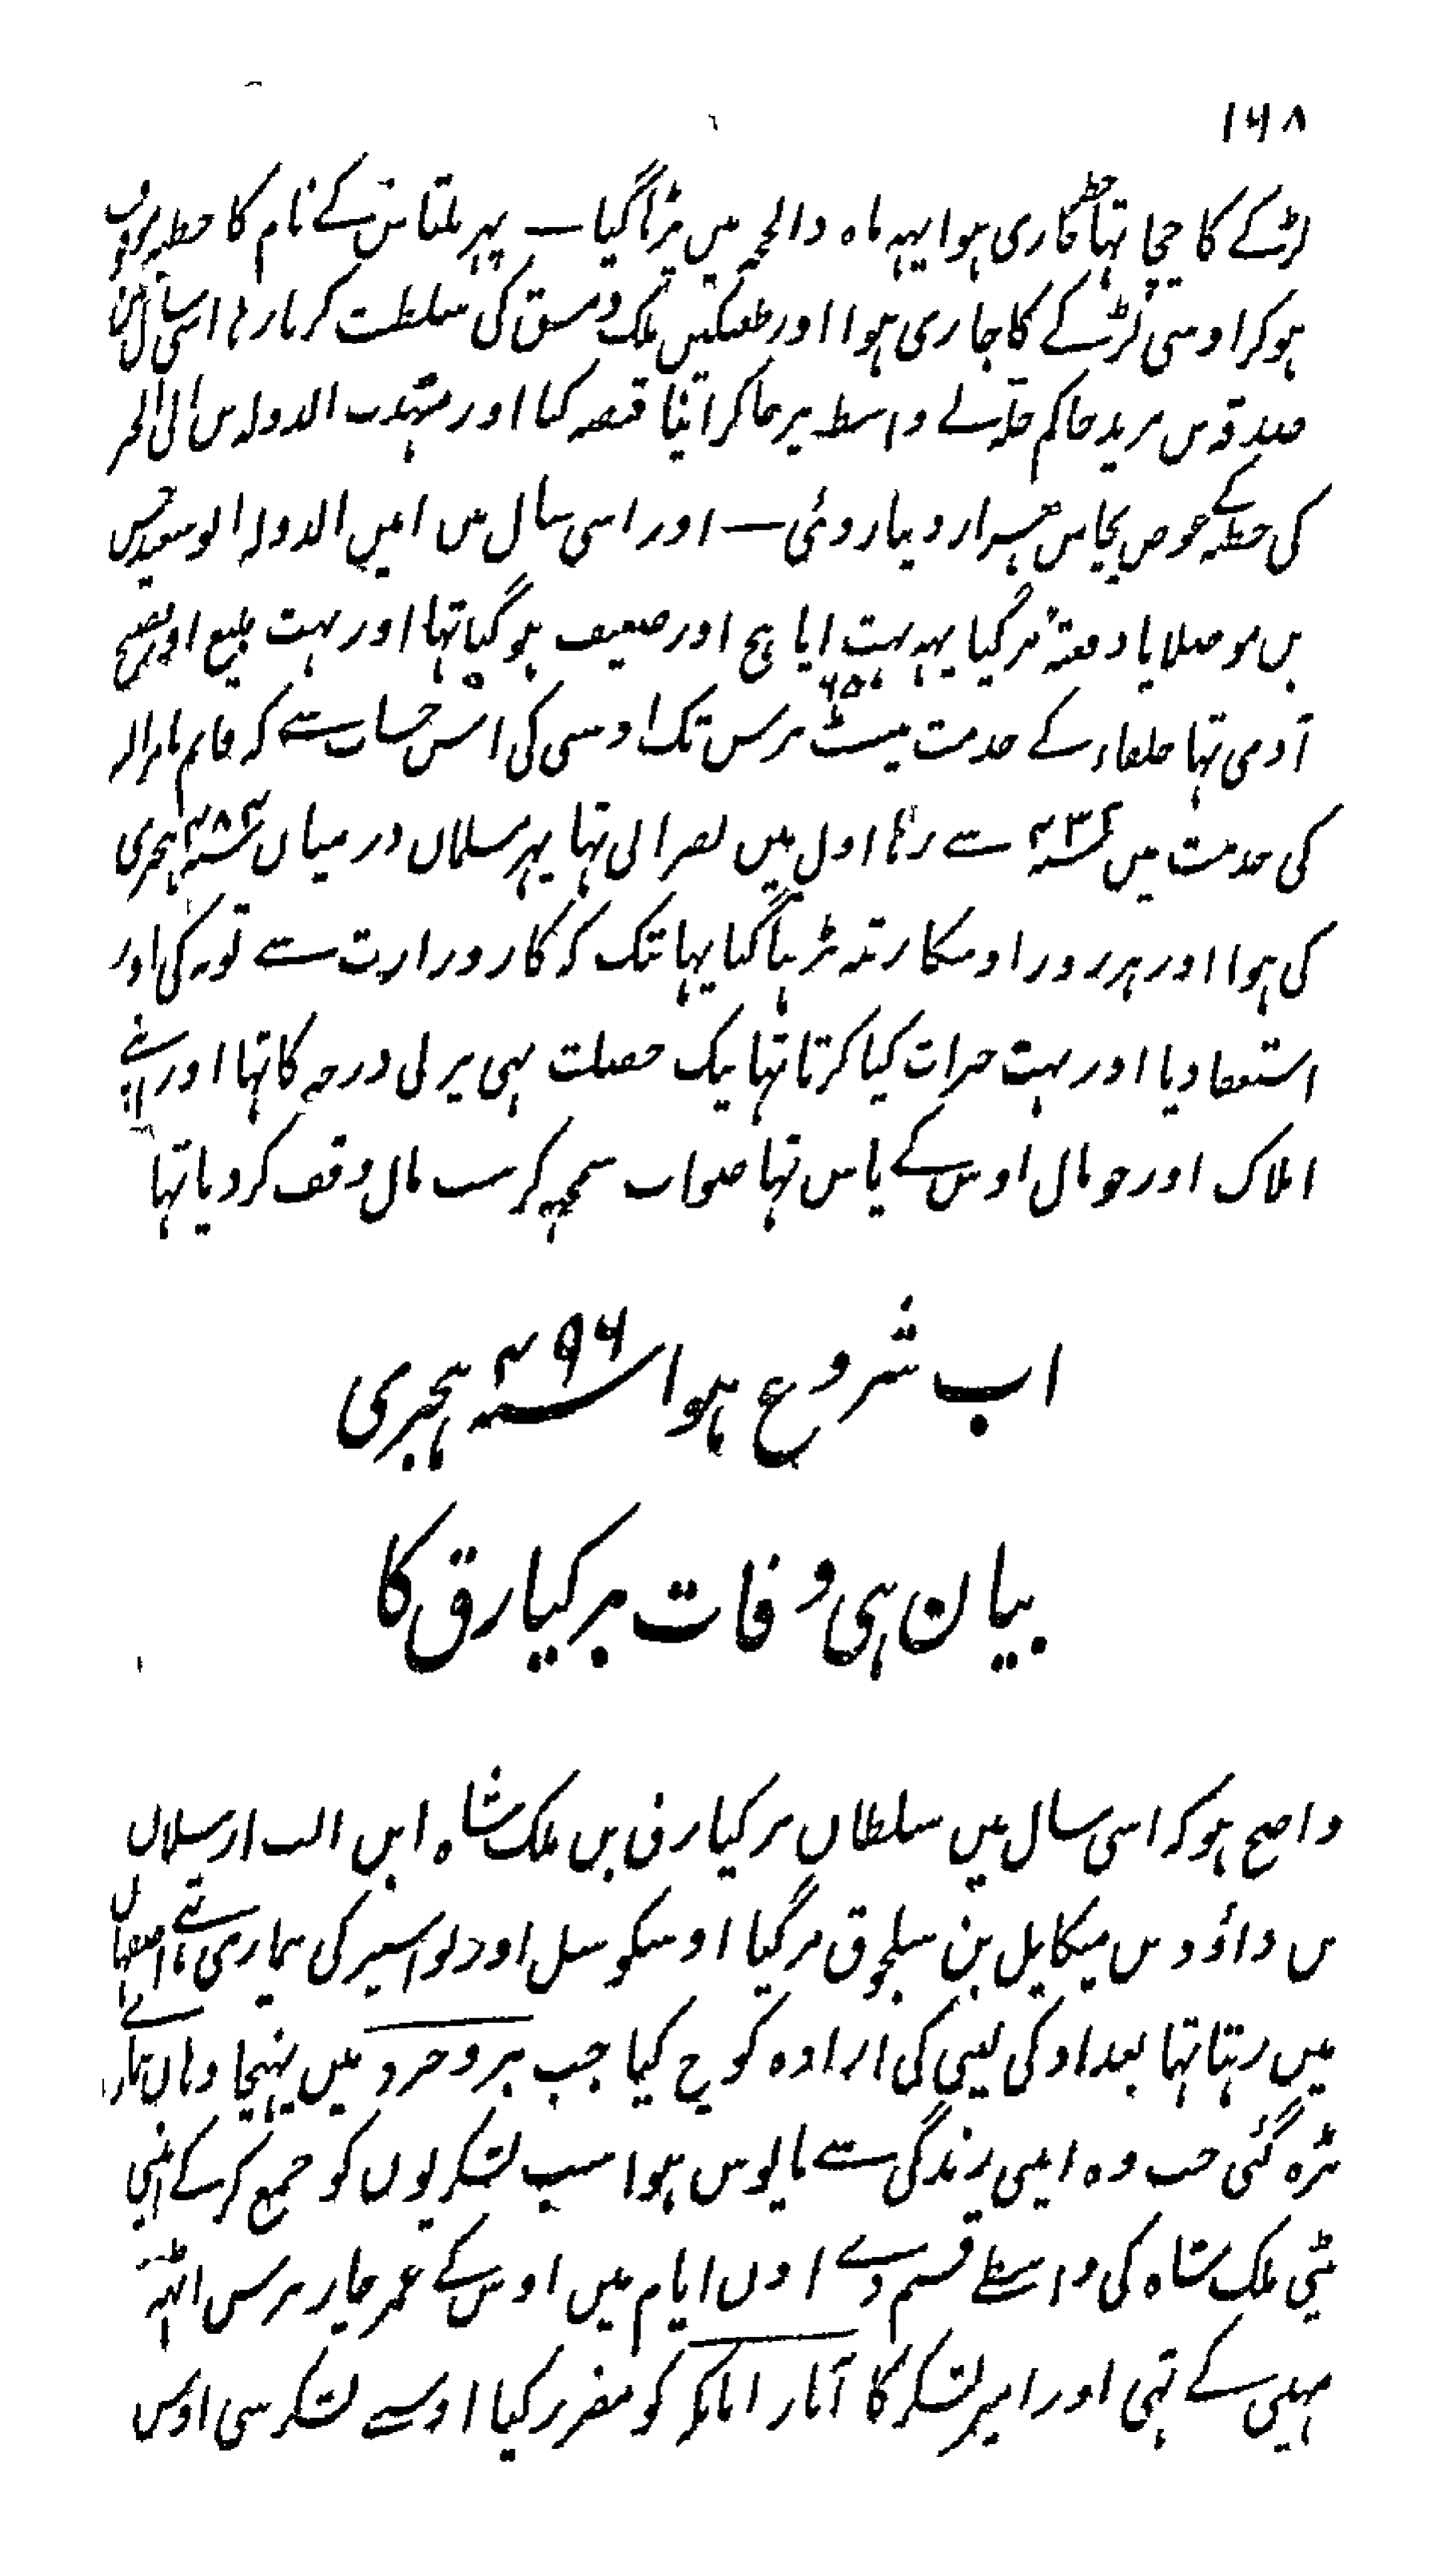 ۱۶۸
لڑکے کا چچا تہا جاری ہوا یہہ ماہ ذالحجہ میں پڑا گیا — پہر بلتاش کے نام کا خطبہ موقوف
ہوکر اوسی لڑکے کا جاری ہوا اور طغتکین ملک دمشق کی سلطنت کرتا رہا اسی سال میں
صدقہ بن مزید حاکم حلّہ نے واسطہ پر جاکر اپنا قبضہ کیا اور مہذب الدولہ بن ابی الخیر
کی خطہ کے عوض پچاس ہزار دینار دئی — اور اسی سال میں امین الدولہ ابو سعید حسن
بن موصلایا دفعتہً مرگیا یہہ بہت اپاہج اور ضعیف ہوگیا تہا اور بہت بلیغ اور فصیح
آدمی تہا خلفاء کے خدمت پینسٹھ برس تک اوسی کی اس حساب سے کہ قایم بامر اللہ
کی خدمت میں ۴۳۲ سے رہا اول میں نصرانی تہا پہر مسلمان درمیان ۴۸۴ ہجری
کی ہوا اور ہر روز اوسکا رتبہ بڑہتا گیا یہانتک کہ کار وزارت سے توبہ کی اور
استعفا دیا اور بہت خیرات کیا کرتا تہا نیک خصلت بہی پرلی درجہ کا تہا اور اپنے
املاک اور جو مال اوس کے پاس تہا صواب سمجہ کر سب مال وقف کر دیا تہا
اب شروع ہوا سنہ ۴۹۶ ہجری
بیان ہی وفات برکیارق کا
واضح ہو کہ اسی سال میں سلطان برکیارق بن ملک شاہ ابن الب ارسلان
بن داؤد بن میکایل بن سلجوق مرگیا اوسکو سل اور بواسیر کی بیماری تہے اصفہان
میں رہتا تہا بغداد کی لیی کی ارادہ کوچ کیا جب بروجرد میں پہنچا وہاں
بڑہ گئی جب وہ اپنی زندگی سے مایوس ہوا سب لشکریوں کو جمع کرکے اپنی
بیٹی ملک شاہ کی واسطے قسم دے اون ایام میں اوس کے عمر چار برس اٹہہ
مہینی کے تہی اور امیر لشکر کا ایاز اتابک کو مقرر کیا اوسے لشکر سی اوس